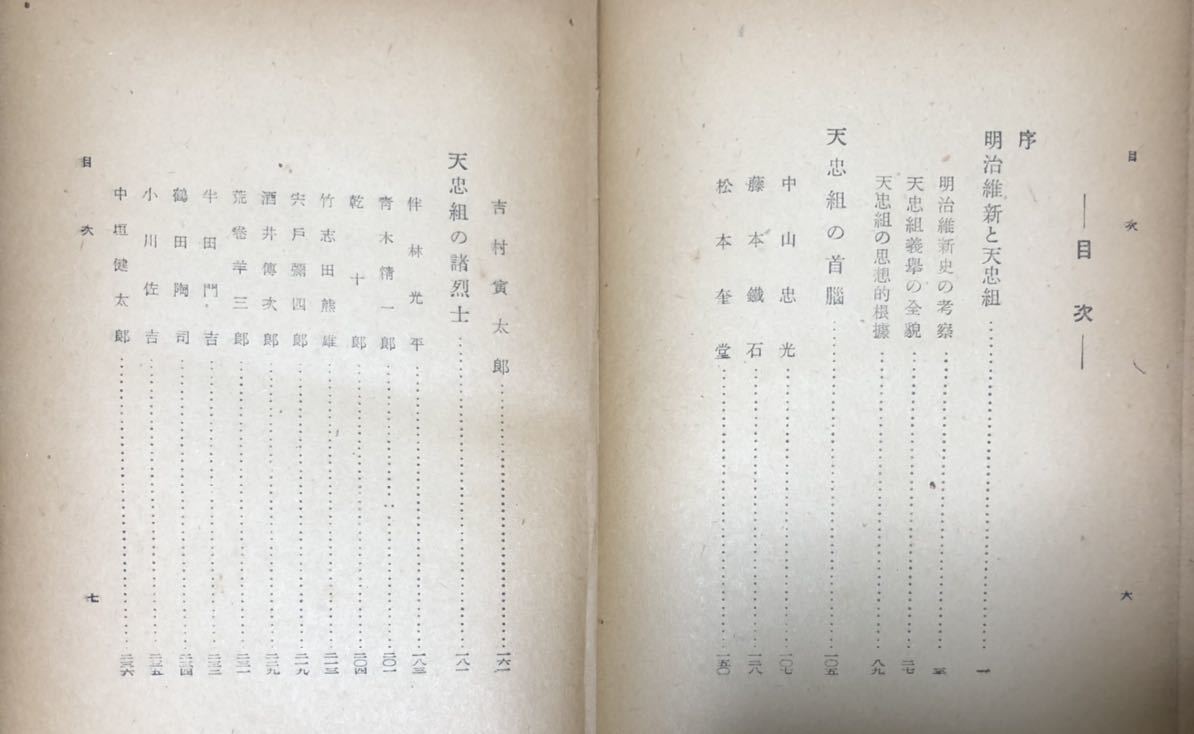 目次
―目次―
序
明治維新と天忠組……一
明治維新史の考察……三
天忠組義擧の全貌……二七
天忠組の思想的根據……八九
天忠組の首腦……一〇五
中山忠光……一〇七
藤本鐵石……一二八
松本奎堂……一五〇
六
吉村寅太郎……一六一
天忠組の諸烈士……一八一
伴林光平……一八三
靑木精一郎……二〇一
乾十郎……二〇四
竹志田熊雄……二一三
宍戶彌四郎……二一九
酒井傳次郎……二二九
荒卷羊三郎……二三一
牛田門吉……二三三
鶴田陶司……二三四
小川佐吉……二三五
中垣健太郎……二三六
目次
七